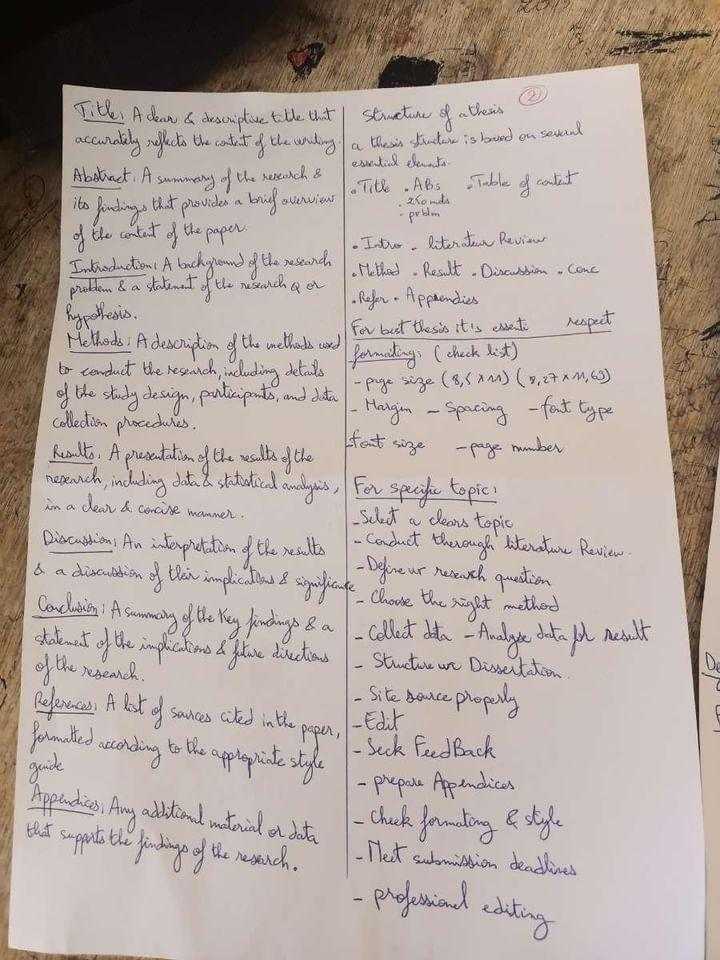 Title: A clear & descriptive title that
accurately reflects the content of the writing.
Abstract: A summary of the research &
its findings that provides a brief overview
of the content of the paper.
Introduction: A background of the research
problem & a statement of the research Q or
hypothesis.
Methods: A description of the methods used
to conduct the research, including details
of the study design, participants, and data
collection procedures.
Results: A presentation of the results of the
research, including data & statistical analysis,
in a clear & concise manner.
Discussion: An interpretation of the results
& a discussion of their implications & significance
Conclusion: A summary of the Key findings & a
statement of the implications & future directions
of the research.
References: A list of sources cited in the paper,
formatted according to the appropriate style
guide
Appendices: Any additional material or data
that supports the findings of the research.
2
Structure of a thesis
a thesis structure is based on several
essential elements.
• Title • ABs • Table of content
- 250 words
- problm
• Intro - literatur Review
• Method • Result • Discussion • Conc
• Refer • Appendies
For best thesis it's essenti respect
formating: (check list)
- page size (8,5 x 11) (8,27 x 11,69)
- Margin - Spacing - font type
- font size - page number
For specific topic:
- Select a clears topic
- Conduct thorough literature Review.
- Define ur research question
- Choose the right method
- Collect data - Analyse data for result
- Structure ur Dissertation.
- Site source properly
- Edit
- Seek FeedBack
- prepare Appendices
- Check formating & style
- Meet submission deadlines
- professional editing